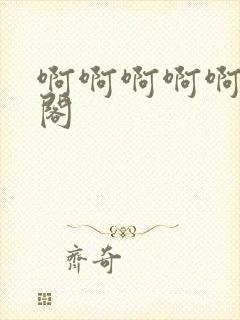 啊啊啊啊啊
阁
齊奇